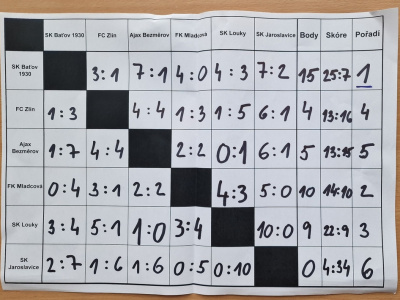 SK Baťov 1930 FC Zlín Ajax Bezměrov FK Mladcová SK Louky SK Jaroslavice Body Skóre Pořadí
SK Baťov 1930 3:1 7:1 4:0 4:3 7:2 15 25:7 1
FC Zlín 1:3 4:4 1:3 1:5 6:1 4 13:16 4
Ajax Bezměrov 1:7 4:4 2:2 0:1 6:1 5 13:15 5
FK Mladcová 0:4 3:1 2:2 4:3 5:0 10 14:10 2
SK Louky 3:4 5:1 1:0 3:4 10:0 9 22:9 3
SK Jaroslavice 2:7 1:6 1:6 0:5 0:10 0 4:34 6